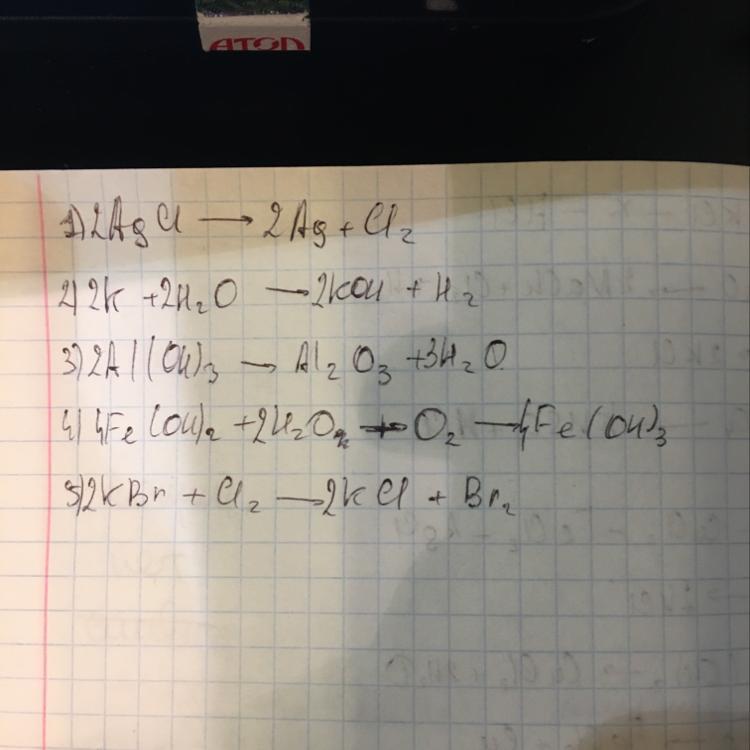 ATOD
1) 2AgCl → 2Ag + Cl₂
2) 2K + 2H₂O → 2KOH + H₂
3) 2Al(OH)₃ → Al₂O₃ + 3H₂O
4) 4Fe(OH)₂ + 2H₂O + O₂ → 4Fe(OH)₃
5) 2KBr + Cl₂ → 2KCl + Br₂